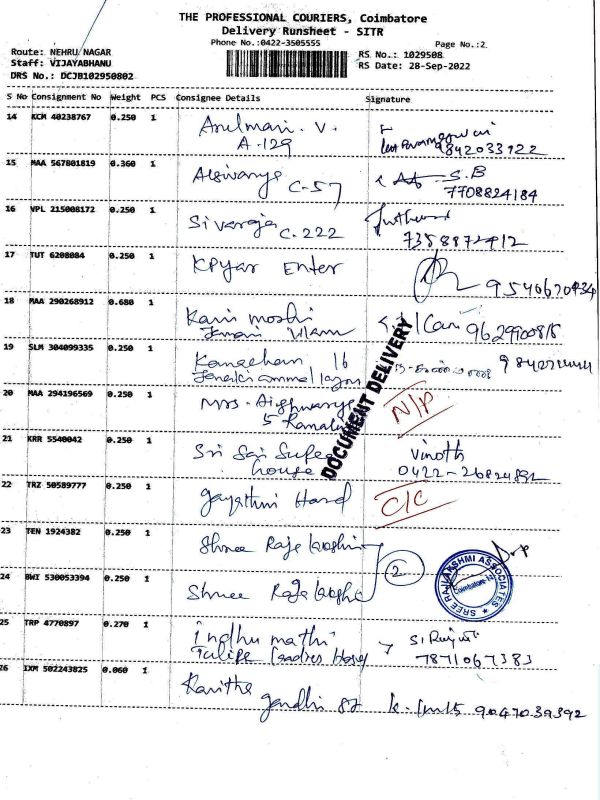 THE PROFESSIONAL COURIERS, Coimbatore
Delivery Runsheet - SITR
Phone No.:0422-3505555
Page No.:2
Route: NEHRU NAGAR
RS No.: 1029508
Staff: VIJAYABHANU
RS Date: 28-Sep-2022
DRS No.: DCJB102950802
S No Consignment No Weight PCS Consignee Details Signature
14 KCM 40238767 0.250 1 V.
A.129 9842033922
15 MAA 567801819 0.360 1 C-57 S.B
7708824184
16 VPL 215008172 0.250 1 Sivaraja C.222
7358872412
17 TUT 6208084 0.250 1 KPyar Enter
9540620434
18 MAA 290268912 0.680 1 Kani moshi
9629900818
19 SLM 304099335 0.250 1 16
20 MAA 294196569 0.250 1 Mrs. Aishwarya N/P
5
DOCUMENT DELIVERY
21 KRR 5540042 0.250 1 Sri Sai Super Vinoth
house 0422-26824892
22 TRZ 50589777 0.250 1 Gayathri Hard C/C
23 TEN 1924382 0.250 1 Shree Raje
2
24 BWI 530053394 0.250 1 Shree Raja
SREE RAJLAKSHMI ASSOCIATES
Coimbatore-12
25 TRP 4770897 0.270 1 indhu mathi
Tulips Ladies 7871067383
26 IXM 502243825 0.060 1 Kavitha
gandhi 82 9047039392